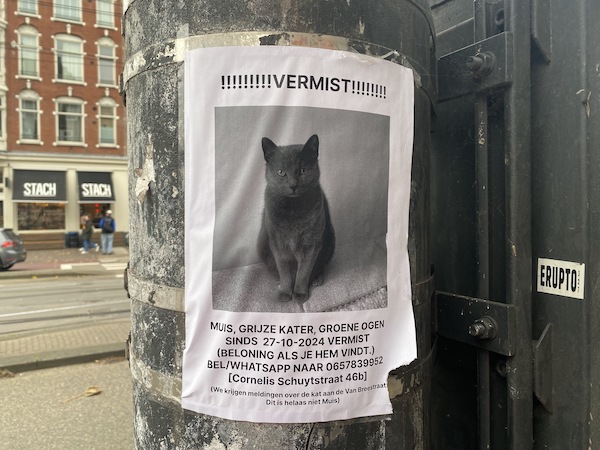 !!!!!!!!!VERMIST!!!!!!!!
MUIS, GRIJZE KATER, GROENE OGEN
SINDS 27-10-2024 VERMIST
(BELONING ALS JE HEM VINDT.)
BEL/WHATSAPP NAAR 0657839952
[Cornelis Schuytstraat 46b]
(We krijgen meldingen over de kat aan de Van Breestraat,
Dit is helaas niet Muis)
STACH
STACH
ERUPTO